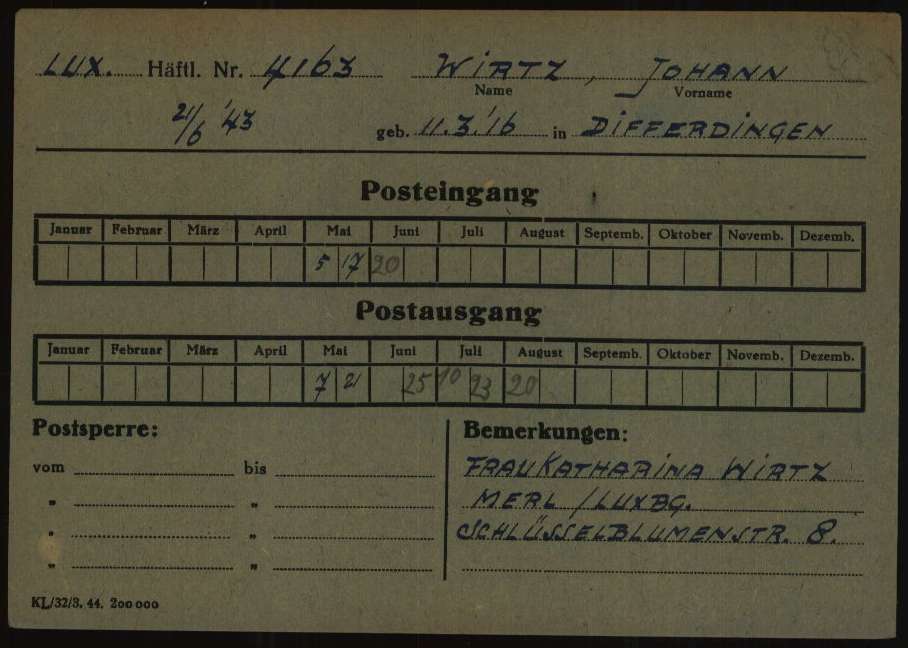 LUX. Häftl. Nr. 4163 WIRTZ, JOHANN
Name Vorname
21/6 '43 geb. 11.3.'16 in DIFFERDINGEN
Posteingang
Januar Februar März April Mai Juni Juli August Septemb. Oktober Novemb. Dezemb.
5 17 20
Postausgang
Januar Februar März April Mai Juni Juli August Septemb. Oktober Novemb. Dezemb.
7 21 25 10 23 20
Postsperre: Bemerkungen:
vom bis FRAU KATHARINA WIRTZ
" " MERL / LUXBG.
" " SCHLÜSSELBLUMENSTR. 8.
" "
KL/32/3. 44. 200 000